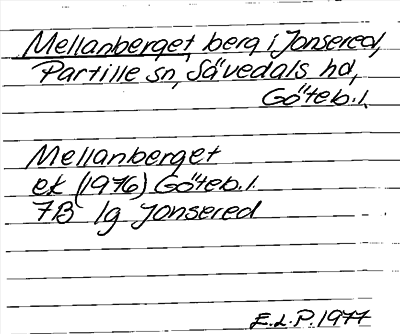 Mellanberget, berg i Jonsered,
Partille sn, Sävedals hd,
Göteb. l.
Mellanberget
ek (1976) Göteb. l.
7B lg Jonsered
E.L.P. 1977